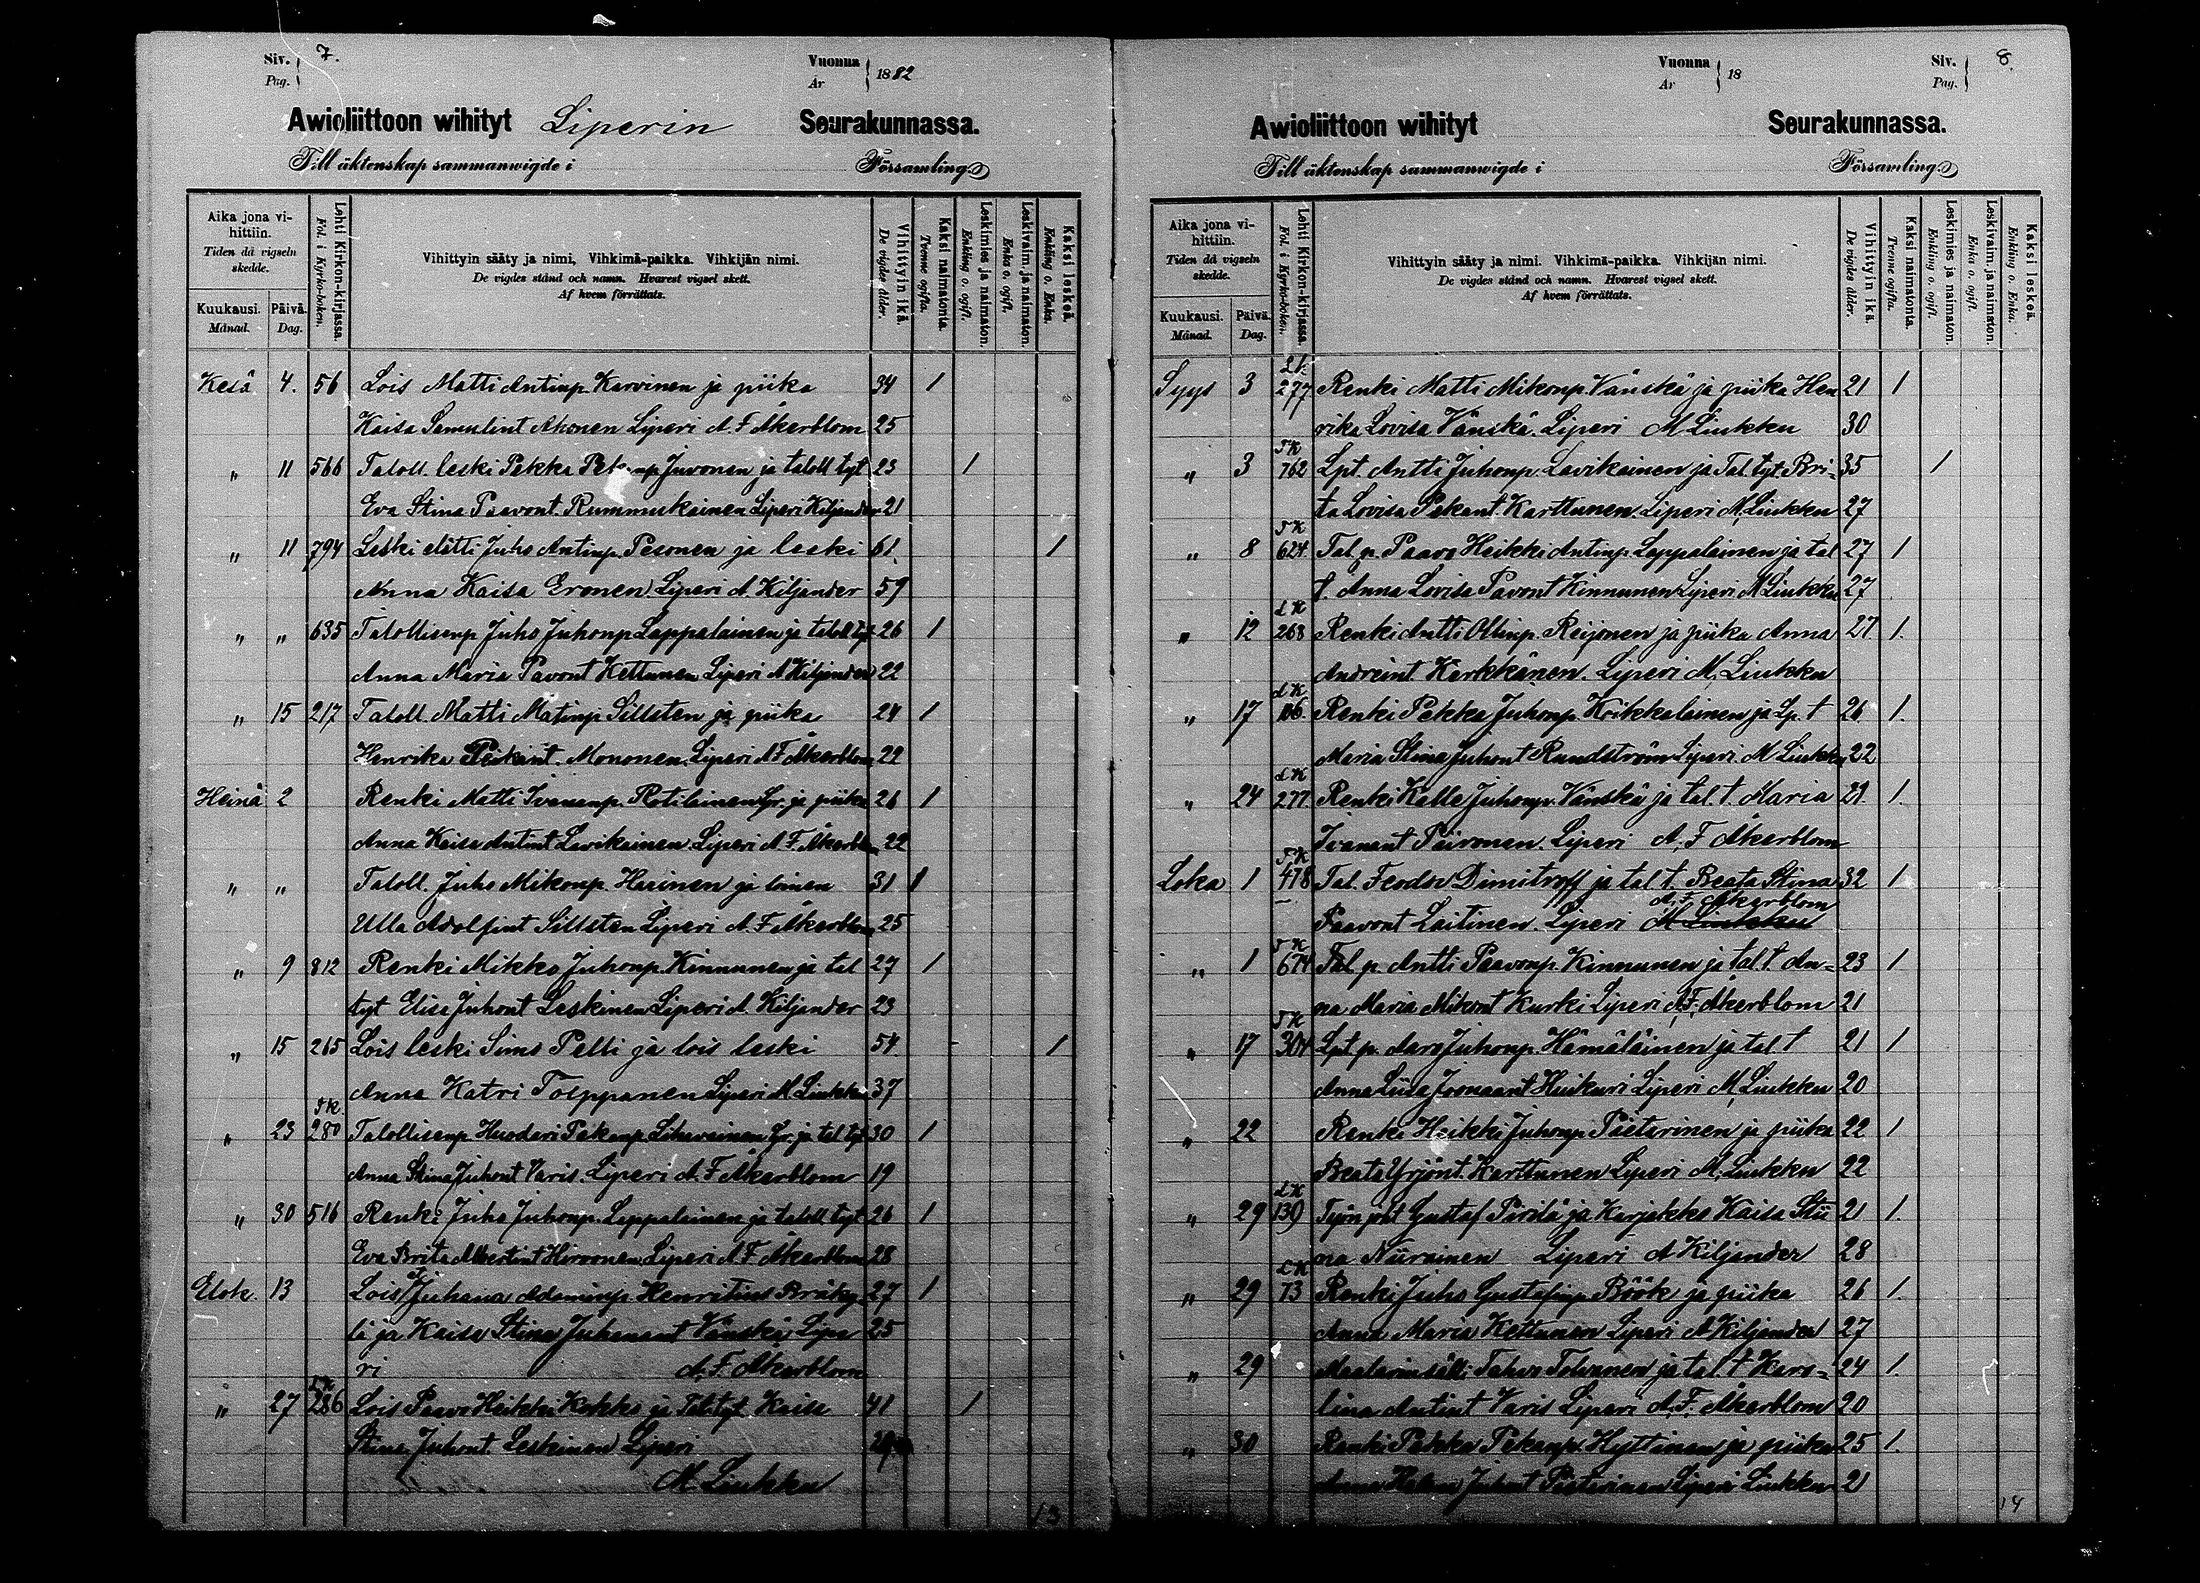 Siv. 7.
Pag.
Vuonna 1882
År
Awioliittoon wihityt Liperin Seurakunnassa.
Till äktenskap sammanwigde i Församling.
Aika jona vihittiin.
Tiden då vigseln skedde.
Kuukausi. Månad.
Päivä. Dag.
Lehti Kirkon-kirjassa. Fol. i Kyrko-boken.
Vihittyin sääty ja nimi, Vihkimä-paikka. Vihkijän nimi.
De vigdes stånd och namn. Hvarest vigsel skett.
Af hvem förrättats.
Vihittyin ikä. De vigdes ålder.
Kaksi naimatonta. Tvenne ogifta.
Leskimies ja naimaton. Enkling o. ogift.
Leskivaim. ja naimaton. Enka o. ogift.
Kaksi leskeä. Enkling o. Enka.
Kesä 4. 56 Lois Matti Antinp. Karvinen ja piika 34 1
Kaisa Samulint Ahonen Liperi A. F. Åkerblom 25
" 11 566 Taloll. leski Pekka Pekanp Juvonen ja taloll tyt 23 1
Eva Stina Paavont. Rummukainen Liperi Kiljander 21
" 11 794 Leski elätti Juho Antinp. Pesonen ja leski 61 1
Anna Kaisa Eronen Liperi A. Kiljander 59
" " 635 Talollisenp Juho Juhonp Lappalainen ja taloll tyt 26 1
Anna Maria Pavont Kettunen Liperi A Kiljander 22
" 15 217 Taloll. Matti Matinp. Sillsten ja piika 24 1
Henrika Mononen. Liperi A F Åkerblom 22
Heinä 2 Renki Matti Ivananp. Rotilainen Gr. ja piika 26 1
Anna Kaisa Antint Lavikainen. Liperi A. F. Åkerblom 22
" " Taloll. Juho Mikonp. Harinen ja loinen 31 1
Ulla Adolfint Sillsten Liperi A. F Åkerblom 25
" 9 812 Renki Mikko Juhonp. Kinnunen ja tal 27 1
tyt Elisa Juhont Leskinen Liperi A. Kiljander 23
" 15 265 Lois leski Simo Pelli ja lois leski 54 1
Anna Katri Toippanen Liperi M. Liukku 37
" 23 T K. 280 Talollisenp. Huodari Pekanp Gr. ja tal tyt 30 1
Anna Stina Juhont Varis. Liperi A. F Åkerblom 19
" 30 516 Renki Juho Juhonp. Lappalainen ja taloll tyt 26 1
Eva Brita Albertint Hirvonen Liperi A F Åkerblom 28
Elok. 13 Lois Juhana Adaminp. Henritius Bräky 27 1
lä ja Kaisa Stina Juhanant Vänskä Lipe 25
ri A. F. Åkerblom
" 27 L K 286 Lois Paavo Heikki Kokko ja Tal tyt Kaisa 41 1
Stina Juhont Leskinen Liperi
M. Liukku
13
Vuonna 18
År
Siv. 8.
Pag.
Awioliittoon wihityt Seurakunnassa.
Till äktenskap sammanwigde i Församling.
Aika jona vihittiin.
Tiden då vigseln skedde.
Kuukausi. Månad.
Päivä. Dag.
Lehti Kirkon-kirjassa. Fol. i Kyrko-boken.
Vihittyin sääty ja nimi. Vihkimä-paikka. Vihkijän nimi.
De vigdes stånd och namn. Hvarest vigsel skett.
Af hvem förrättats.
Vihittyin ikä. De vigdes ålder.
Kaksi naimatonta. Tvenne ogifta.
Leskimies ja naimaton. Enkling o. ogift.
Leskivaim. ja naimaton. Enka o. ogift.
Kaksi leskeä. Enkling o. Enka.
Syys 3 277 Renki Matti Mikonp. Vänskä ja piika Hen 21 1
rika Lovisa Vänskä. Liperi M Liukku 30
" 3 T K 762 Lpt. Antti Juhonp. Lavikainen ja Tal. tyt. Bri- 35 1
ta Lovisa Pekant. Karttunen. Liperi M. Liukku 27
" 8 T K 624 Tal. p. Paavo Heikki Antinp. Lappalainen ja tal 27 1
t. Anna Lovisa Pavont Kinnunen Liperi M Liukku 27
" 12 L K 268 Renki Antti Ollinp. Reijonen ja piika Anna 27 1.
Andreint Karkkänen. Liperi M. Liukku
" 17 L K 106 Renki Pekka Juhonp. Kokkalainen ja Lp. t 26 1.
Maria Stina Juhont Rundström Liperi. M Liukku 22
" 24 L K 277 Renki Kalle Juhonp. Vänskä ja tal. t. Maria 21. 1.
Ivanant Päivonen. Liperi A. F Åkerblom
Loka 1 T K 478 Tal. Feodor Dimitroff ja tal t. Beata Stina 32 1
A. F. Åkerblom
Paavont Laitinen. Liperi M Liukku
" 1 T K 674 Tal p. Antti Paavonp. Kinnunen ja tal. t. An- 23 1
na Maria Mikont Kurki Liperi A. F. Åkerblom 21
" 17 T K 304 Lpt p. Aaro Juhonp. Hämäläinen ja tal t 21 1
Anna Liisa Joonaant Huikuri Liperi M. Liukku 20
" 22 Renki Heikki Juhonp. Päetarinen ja piika 22 1
Beata Yrjönt. Karttunen Liperi M. Liukku 22
" 29 L K 139 Työn joht Gustaf Pirilä ja Karjakko Kaisa Stii 21 1.
na Niirainen Liperi A Kiljander 28
" 29 L K 73 Renki Juho Gustafinp. Böök ja piika 26 1.
Anna Maria Kettunen Liperi A Kiljander 27
" 29 Maalarinsälli Tahvo Tolvanen ja tal. t Karo- 24 1.
lina Antint Varis Liperi A. F. Åkerblom 20
" 30 Renki Pekka Pekanp. Hyttinen ja piika 25 1.
Anna Helena Juhont Päetarinen Liperi Liukku 21
14